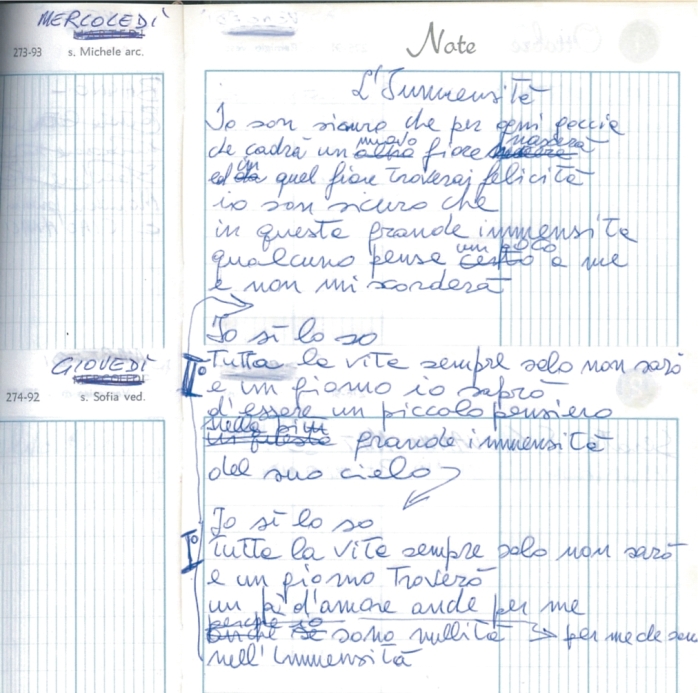 MERCOLEDÌ
273-93 s. Michele arc.
GIOVEDÌ
MERCOLEDÌ
274-92 s. Sofia ved.
Note
L'Immensità
Io son sicuro che per ogni goccia
che cadrà un altro nuovo fiore nascerà
ed da in quel fiore troverai felicità
io son sicuro che
in questa grande immensità
qualcuno pensa certo un poco a me
e non mi scorderà
Io sì lo so
IIº Tutta la vita sempre solo non sarò
e un giorno io saprò
d'essere un piccolo pensiero
in questa nella più grande immensità
del suo cielo
Io sì lo so
Iº Tutta la vita sempre solo non sarò
e un giorno troverò
un pò d'amore anche per me
anche se perche io sono nullità → per me che son
nell'Immensità